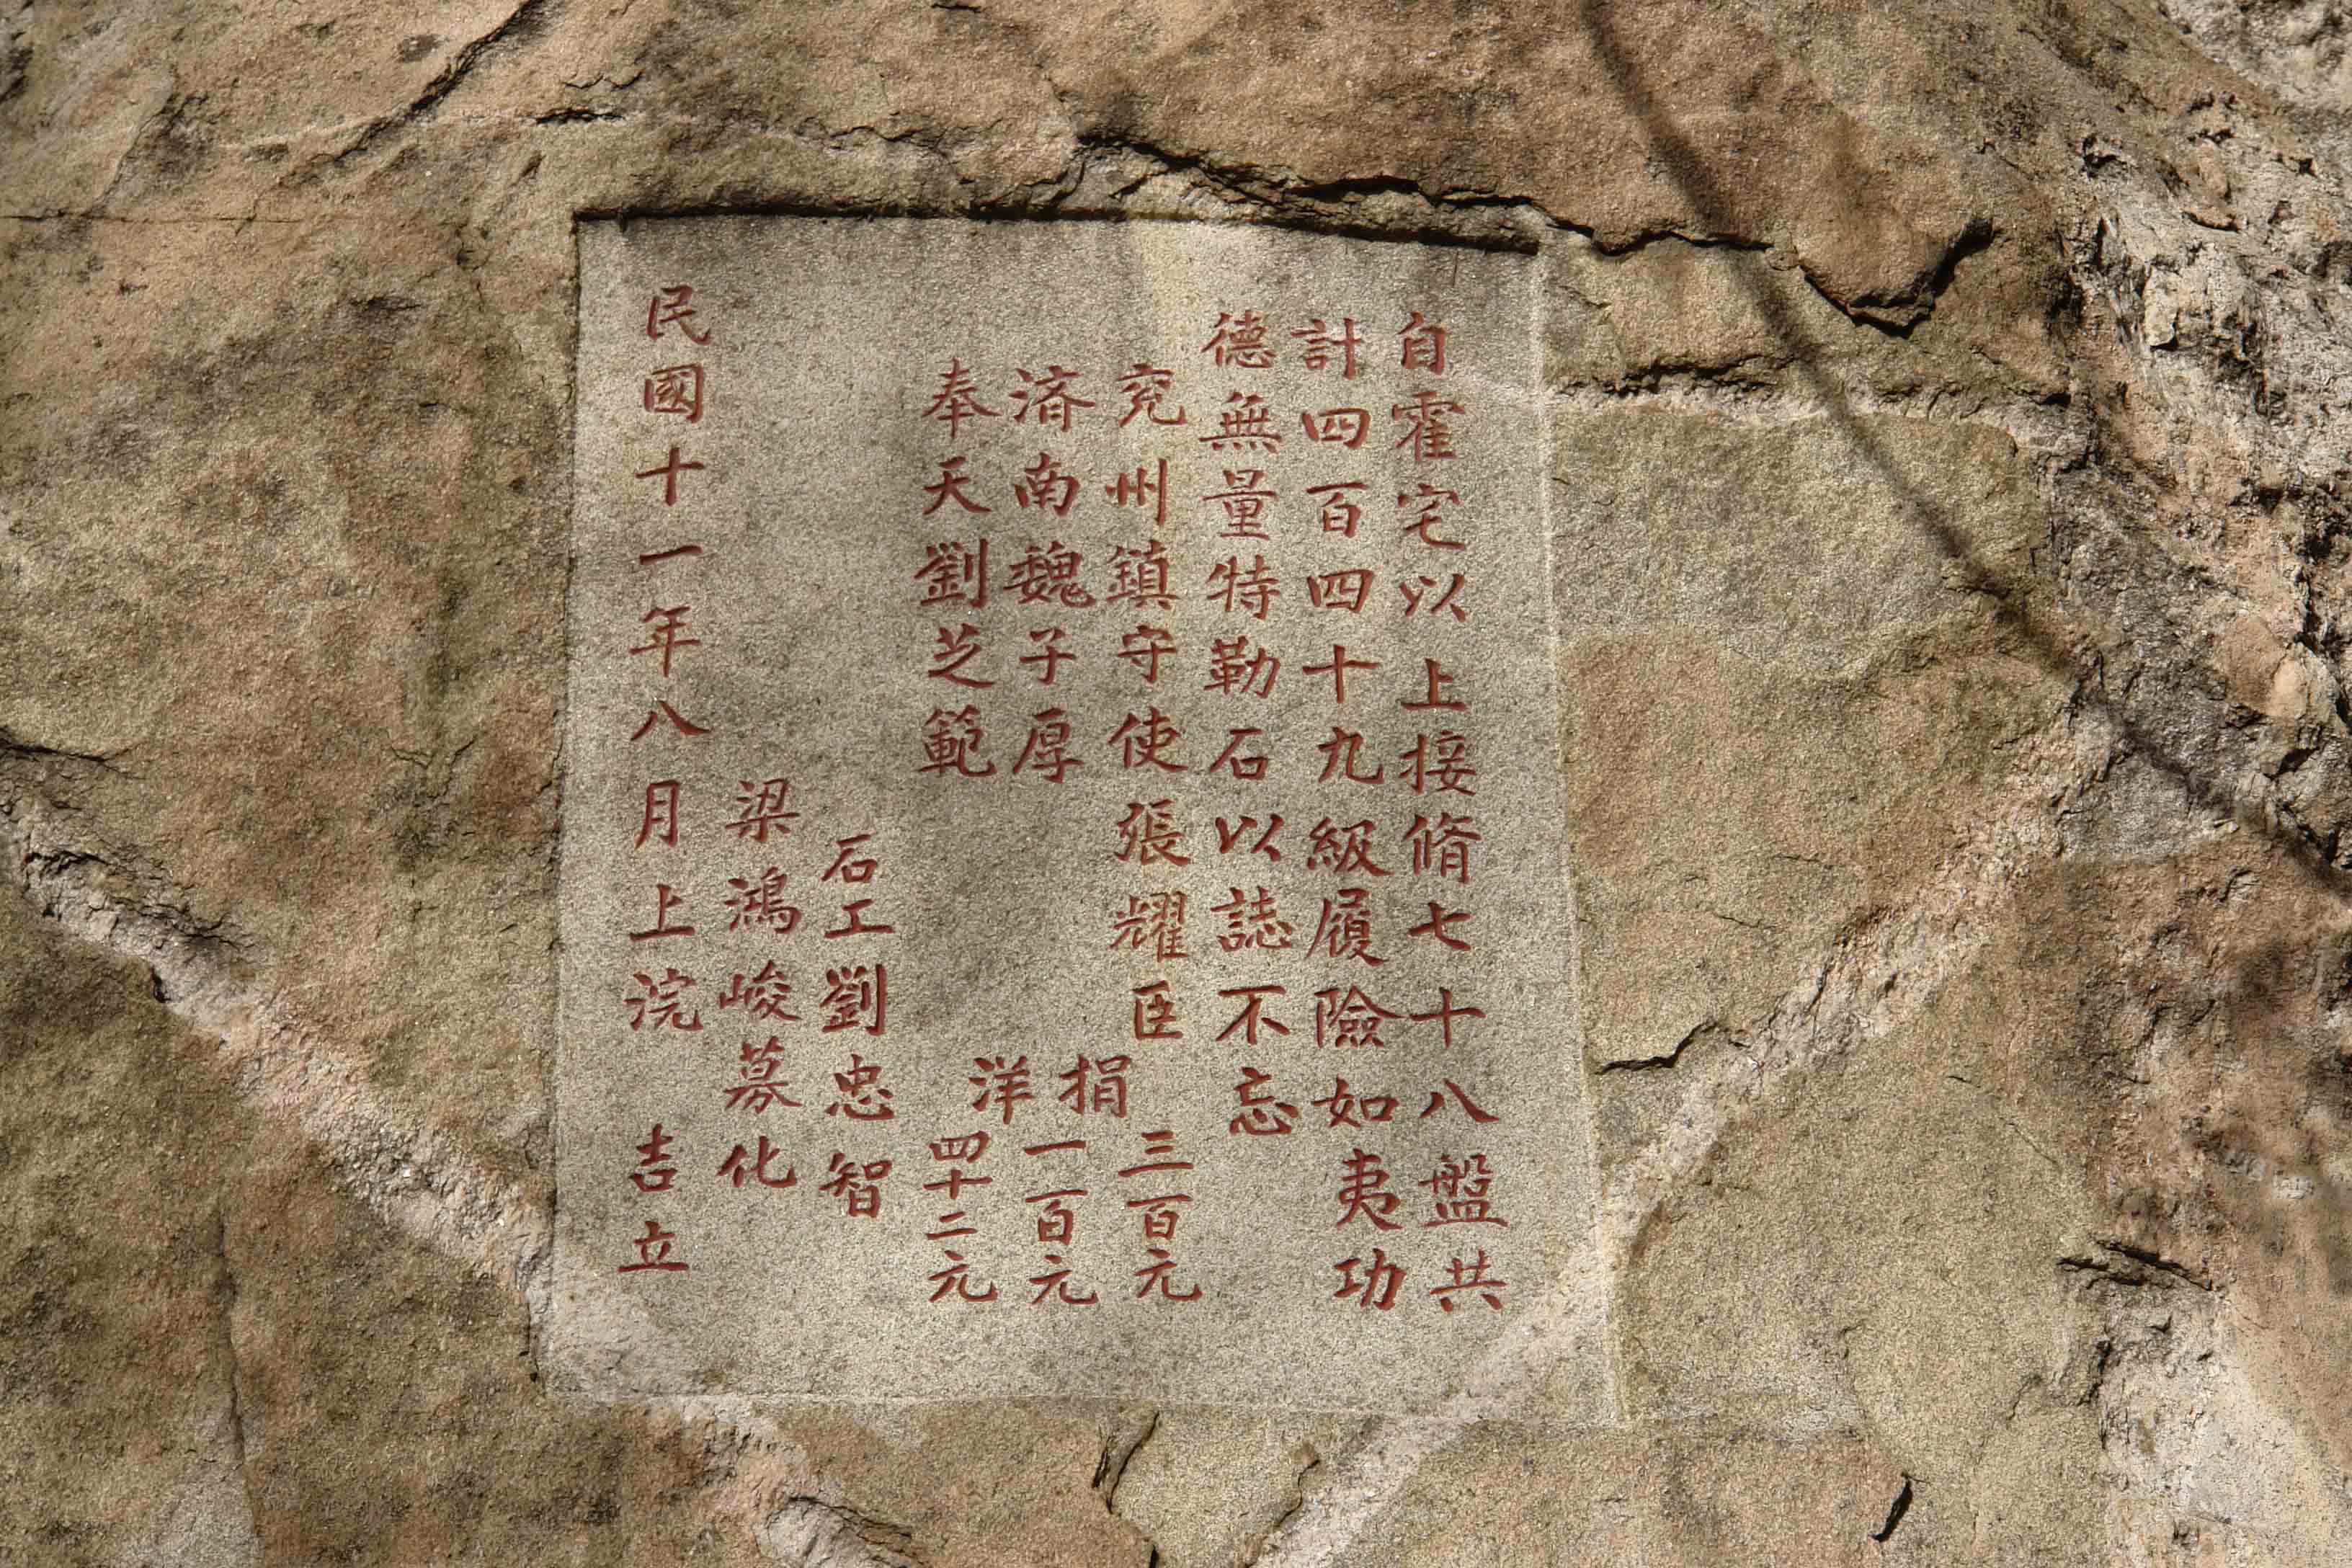 自霍宅以上接脩七十八盤共
計四百四十九級履險如夷功
德無量特勒石以誌不忘
兖州鎮守使張耀臣 三百元
濟南魏子厚 捐 一百元
奉天劉芝範 洋 四十二元
石工劉忠智
梁鴻峻募化
民國十一年八月上浣 吉立